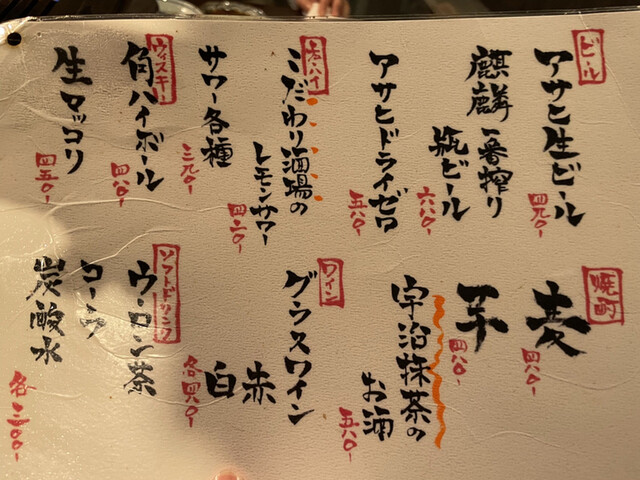 ビール
アサヒ生ビール
四九〇-
麒麟一番搾り
瓶ビール
六八〇-
アサヒドライゼロ
五八〇-
こだわり酒場の
レモンサワー
四二〇-
サワー各種
三九〇-
ウィスキー
角ハイボール
四八〇-
生マッコリ
四五〇-
焼酎
麦
四八〇-
芋
四八〇-
宇治抹茶の
お酒
五八〇-
ワイン
グラスワイン
赤
白
各四八〇-
ソフトドリンク
ウーロン茶
コーラ
炭酸水
各三〇〇-